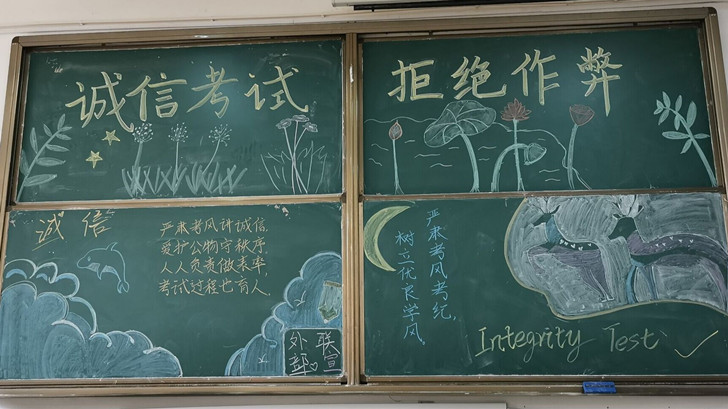 诚信考试
拒绝作弊
诚信
严肃考风讲诚信，
爱护公物守秩序，
人人负责做表率，
考试过程也育人。
外联
部宣
严肃考风考纪，
树立优良学风。
Integrity Test